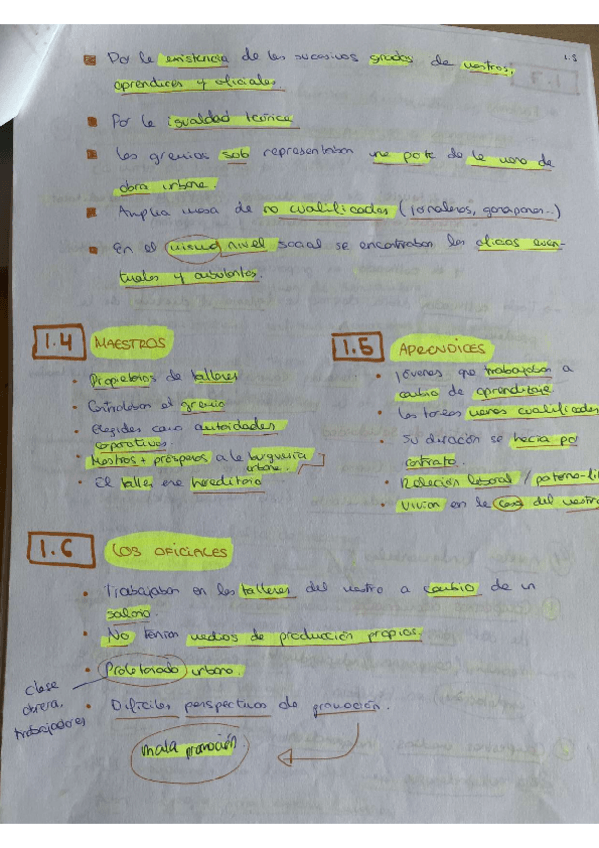 Por la existencia de los sucesivos grados de maestros, 1.3
aprendices y oficiales.
Por la igualdad teórica
Los gremios sob representaban una parte de la mano de
obra urbana.
Amplia masa de no cualificados (jornaleros, ganapanes...)
En el mismo nivel social se encontraban los oficios even-
tuales y ambulantes.
1.4 MAESTROS
Propietarios de talleres
Controlaban el gremio
Elegidos como autoridades
corporativos.
Maestros + prósperos a la burguesía
urbana.
El taller era hereditario
1.5 APRENDICES
Jóvenes que trabajaban a
cambio de aprendizaje
Las tareas menos cualificadas
Su duración se hacía por
contrato.
Relación laboral / paterno-fi
Vivían en la casa del maestro
1.6 LOS OFICIALES
Trabajaban en los talleres del maestro a cambio de un
salario.
No tenían medios de producción propios.
Proletariado urbano.
clase
obrera,
trabajadores
Difíciles perspectivas de promoción.
mala promoción.